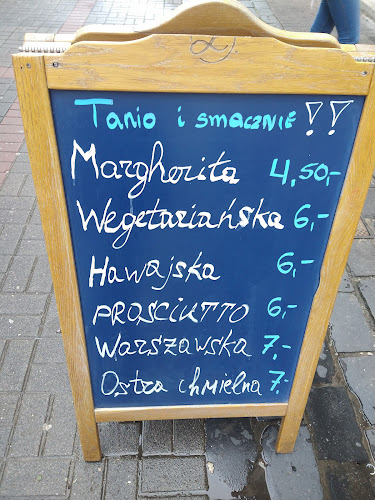 Tanio i smacznie !!
Margherita 4,50,-
Wegetariańska 6,-
Hawajska 6,-
PROSCIUTTO 6,-
Warszawska 7,-
Ostra chmielna 7,-